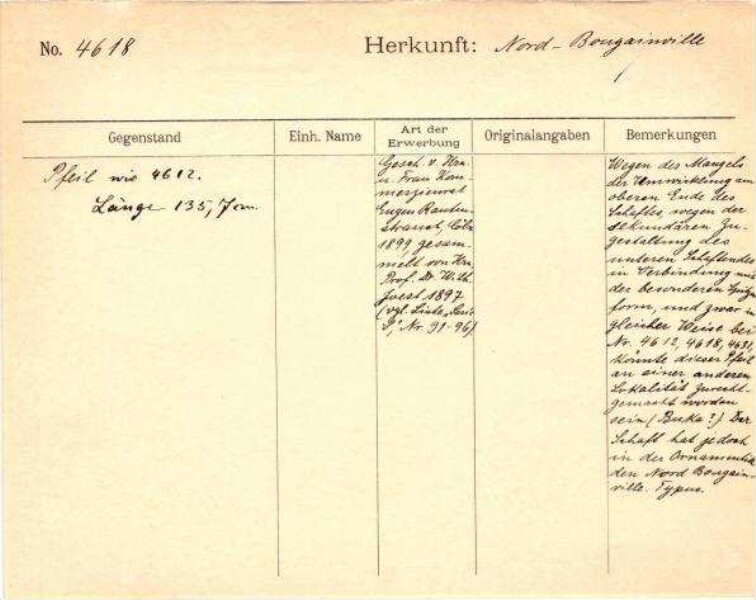 No. 4618 Herkunft: Nord-Bougainville
Gegenstand
Einh. Name
Art der
Erwerbung
Originalangaben
Bemerkungen
Pfeil wie 4612.
Länge 135,7 cm.
Gesch. v. Hrn.
u. Frau Kom-
merzienrat
Eugen Rauten-
strauch, Cöln
1899, gesam-
melt von Hrn.
Prof. Dr. Wilh.
Joest 1897
(vgl. Liste "Serie
Nr. 91-96)
Wegen des Mangels
der Umwicklung am
oberen Ende des
Schaftes, wegen der
sekundären Zu-
gestaltung des
unteren Schaftendes
in Verbindung mit
der besonderen Spitzen
form, und zwar in
gleicher Weise bei
Nr. 4612, 4618, 4621,
könnte dieser Pfeil
an einer anderen
Lokalität zurecht-
gemacht worden
sein (Buka?). Der
Schaft hat jedoch
in der Ornamentik
den Nord Bougain-
ville. Typus.